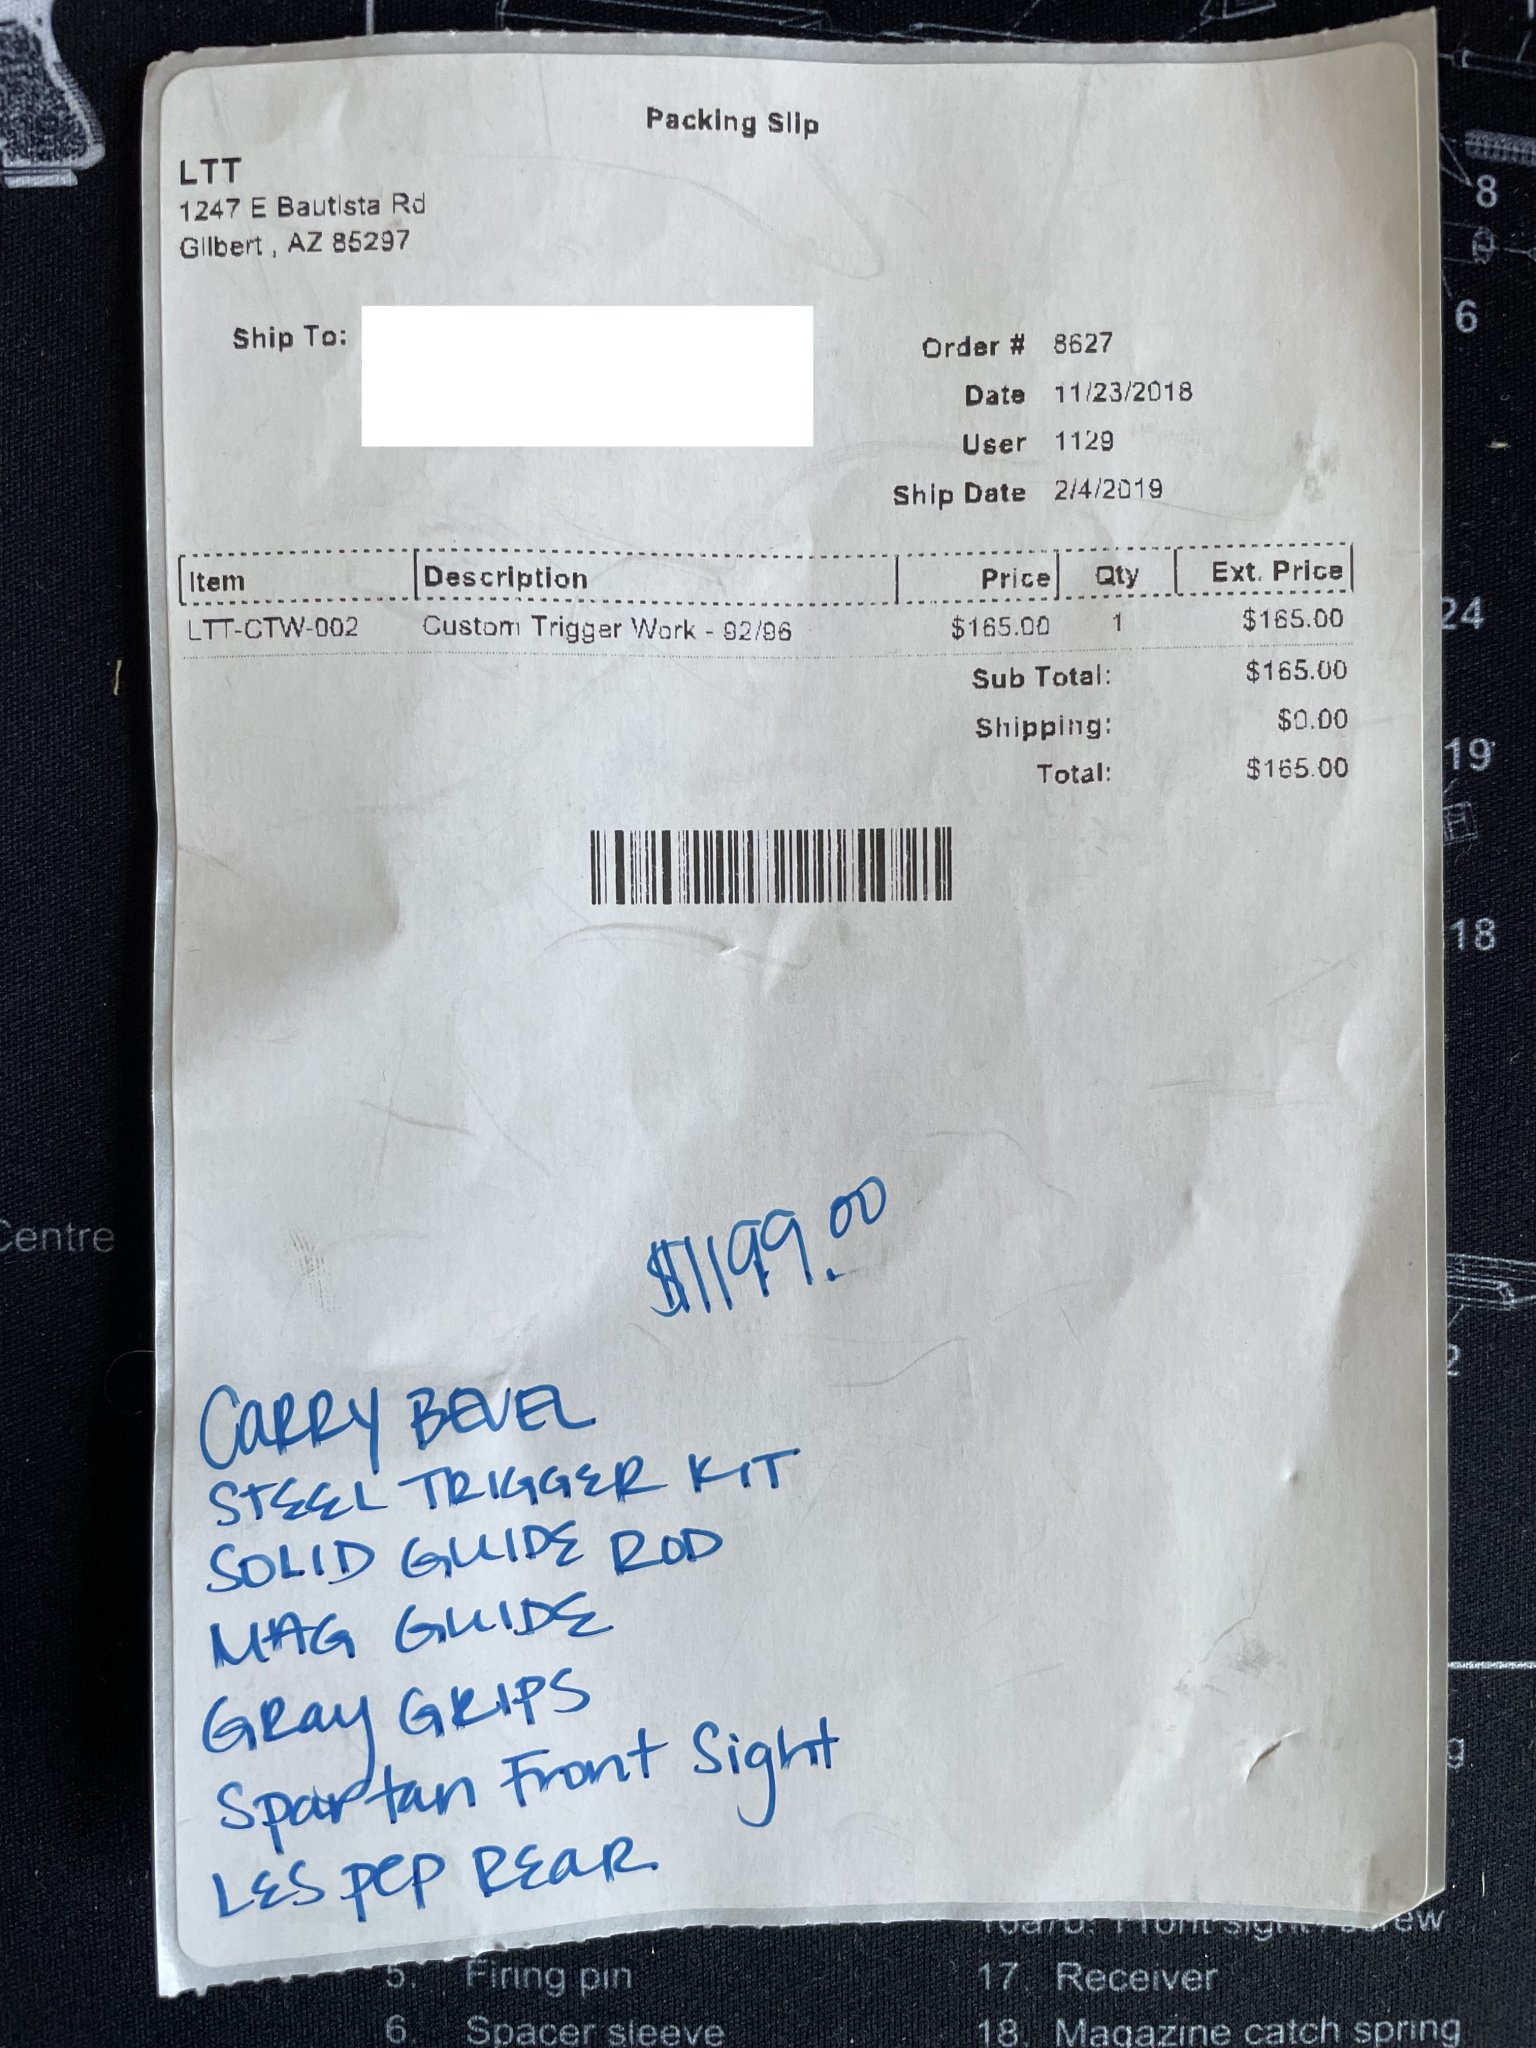 Packing Slip
LTT
1247 E Bautista Rd
Gilbert , AZ 85297
Ship To:
Order # 8627
Date 11/23/2018
User 1129
Ship Date 2/4/2019
Item Description Price Qty Ext. Price
LTT-CTW-002 Custom Trigger Work - 92/96 $165.00 1 $165.00
Sub Total: $165.00
Shipping: $0.00
Total: $165.00
$1199.00
CARRY BEVEL
STEEL TRIGGER KIT
SOLID GUIDE ROD
MAG GUIDE
GRAY GRIPS
Spartan Front Sight
LES PCP REAR
8
6
24
19
18
Centre
2
g
5. Firing pin
6. Spacer sleeve
17. Receiver
18. Magazine catch spring